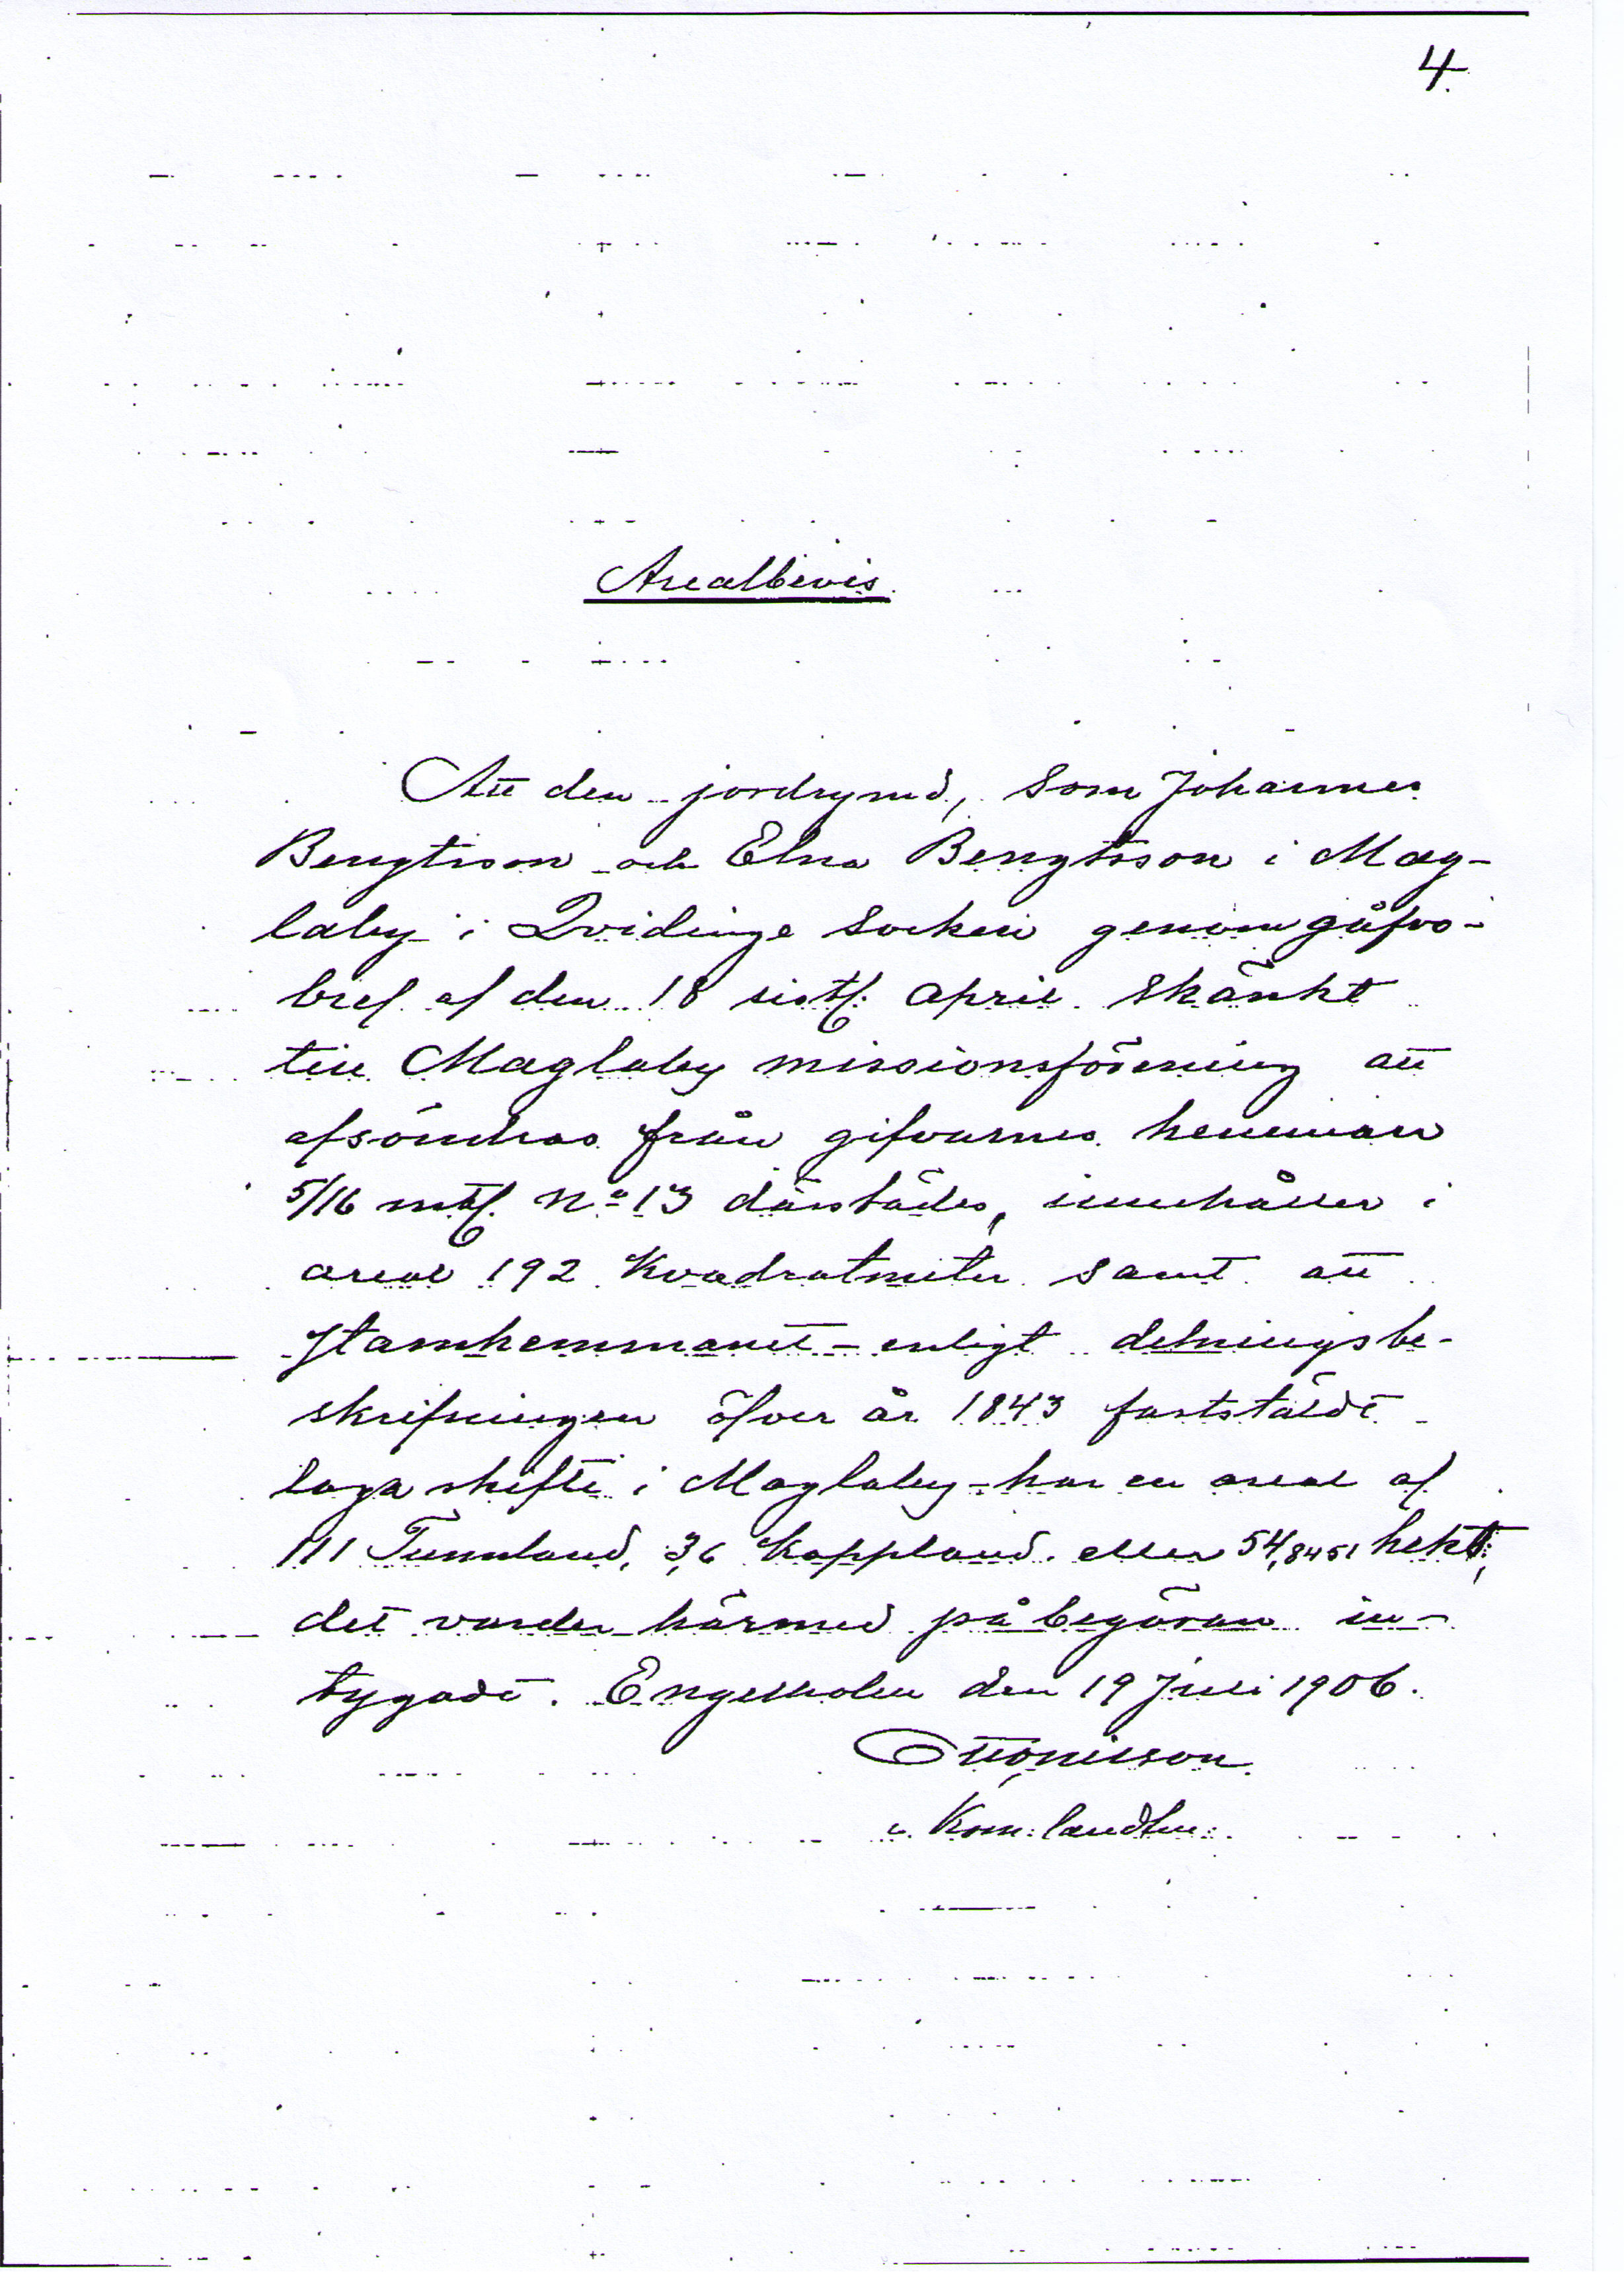 4.
Arealbevis
Att den jordrymd, som Johannes
Bengtsson och Elna Bengtsson i Mag-
laby i Qvidinge socken genom gåfvo-
bref af den 18 sistl. april skänkt
till Maglaby missionsförening att
afsöndras från gifvarnes hemman
5/16 mtl. No 13 därstädes, innehåller i
areal 192 Kvadratmeter samt att
stamhemmanet - enligt delningsbe-
skrifningen öfver år 1843 faststäldt
laga skifte i Maglaby - har en areal af
111 Tunnland, 3,6 kappland eller 54,8451 hekt:,
det varder härmed på begäran in-
tygadt. Engelholm den 19 Juli 1906.
Otto Nilsson
v. Kom: landtm: